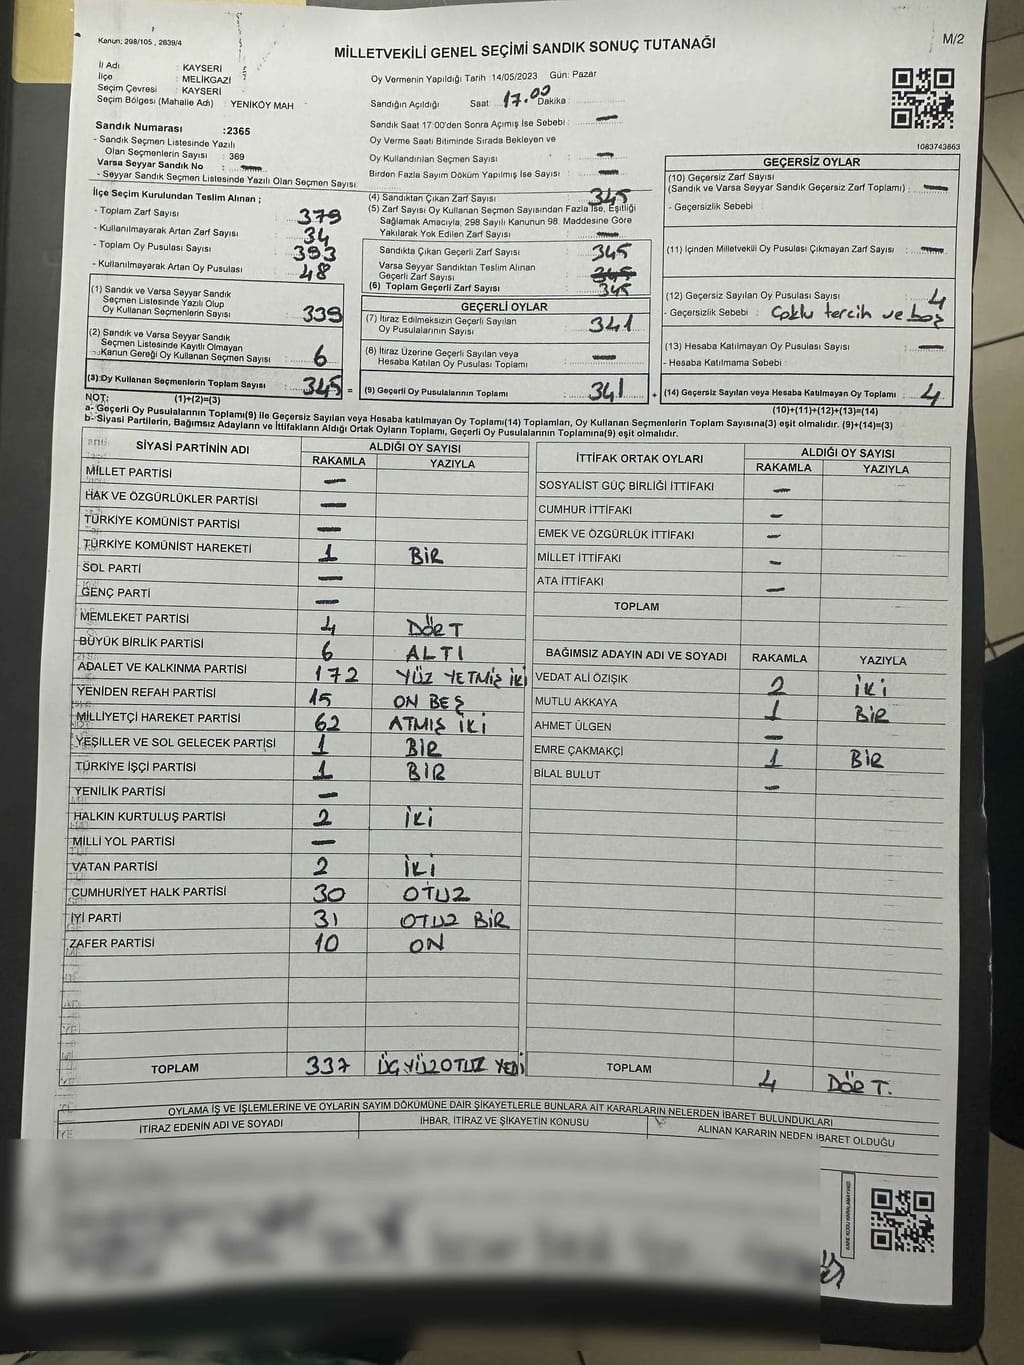 Kanun: 298/105 , 2839/4
M/2
MİLLETVEKİLİ GENEL SEÇİMİ SANDIK SONUÇ TUTANAĞI
İl Adı : KAYSERİ
İlçe : MELİKGAZİ
Seçim Çevresi : KAYSERİ
Seçim Bölgesi (Mahalle Adı) : YENİKÖY MAH
Sandık Numarası :2365
- Sandık Seçmen Listesinde Yazılı
Olan Seçmenlerin Sayısı : 369
Varsa Seyyar Sandık No : —
- Seyyar Sandık Seçmen Listesinde Yazılı Olan Seçmen Sayısı:
Oy Vermenin Yapıldığı Tarih :14/05/2023 Gün: Pazar
Sandığın Açıldığı Saat 17.00 Dakika :
Sandık Saat 17:00'den Sonra Açımış İse Sebebi : —
Oy Verme Saati Bitiminde Sırada Bekleyen ve
Oy Kullandırılan Seçmen Sayısı : —
Birden Fazla Sayım Döküm Yapılmış İse Sayısı : —
1083743863
İlçe Seçim Kurulundan Teslim Alınan ;
- Toplam Zarf Sayısı : 379
- Kullanılmayarak Artan Zarf Sayısı : 34
- Toplam Oy Pusulası Sayısı : 393
- Kullanılmayarak Artan Oy Pusulası : 48
(1) Sandık ve Varsa Seyyar Sandık
Seçmen Listesinde Yazılı Olup
Oy Kullanan Seçmenlerin Sayısı : 339
(2) Sandık ve Varsa Seyyar Sandık
Seçmen Listesinde Kayıtlı Olmayan
Kanun Gereği Oy Kullanan Seçmen Sayısı : 6
(3) Oy Kullanan Seçmenlerin Toplam Sayısı : 345 =
(4) Sandıktan Çıkan Zarf Sayısı : 345
(5) Zarf Sayısı Oy Kullanan Seçmen Sayısından Fazla İse, Eşitliği
Sağlamak Amacıyla; 298 Sayılı Kanunun 98. Maddesine Göre
Yakılarak Yok Edilen Zarf Sayısı : —
Sandıkta Çıkan Geçerli Zarf Sayısı : 345
Varsa Seyyar Sandıktan Teslim Alınan
Geçerli Zarf Sayısı : 345
(6) Toplam Geçerli Zarf Sayısı : 345
GEÇERLİ OYLAR
(7) İtiraz Edilmeksizin Geçerli Sayılan
Oy Pusulalarının Sayısı : 341
(8) İtiraz Üzerine Geçerli Sayılan veya
Hesaba Katılan Oy Pusulaları Toplamı : —
(9) Geçerli Oy Pusulalarının Toplamı : 341 +
GEÇERSİZ OYLAR
(10) Geçersiz Zarf Sayısı
(Sandık ve Varsa Seyyar Sandık Geçersiz Zarf Toplamı) : —
- Geçersizlik Sebebi :
(11) İçinden Milletvekili Oy Pusulası Çıkmayan Zarf Sayısı : —
(12) Geçersiz Sayılan Oy Pusulası Sayısı : 4
- Geçersizlik Sebebi : Çoklu tercih ve boş
(13) Hesaba Katılmayan Oy Pusulası Sayısı : —
- Hesaba Katılmama Sebebi :
(14) Geçersiz Sayılan veya Hesaba Katılmayan Oy Toplamı : 4
NOT: (1)+(2)=(3)
(10)+(11)+(12)+(13)=(14)
a- Geçerli Oy Pusulalarının Toplamı(9) ile Geçersiz Sayılan veya Hesaba katılmayan Oy Toplamı(14) Toplamları, Oy Kullanan Seçmenlerin Toplam Sayısına(3) eşit olmalıdır. (9)+(14)=(3)
b- Siyasi Partilerin, Bağımsız Adayların ve İttifakların Aldığı Ortak Oyların Toplamı, Geçerli Oy Pusulalarının Toplamına(9) eşit olmalıdır.
SİYASİ PARTİNİN ADI ALDIĞI OY SAYISI
RAKAMLA YAZIYLA
MİLLET PARTİSİ —
HAK VE ÖZGÜRLÜKLER PARTİSİ —
TÜRKİYE KOMÜNİST PARTİSİ —
TÜRKİYE KOMÜNİST HAREKETİ 1 BİR
SOL PARTİ —
GENÇ PARTİ —
MEMLEKET PARTİSİ 4 DÖRT
BÜYÜK BİRLİK PARTİSİ 6 ALTI
ADALET VE KALKINMA PARTİSİ 172 YÜZ YETMİŞ İKİ
YENİDEN REFAH PARTİSİ 15 ON BEŞ
MİLLİYETÇİ HAREKET PARTİSİ 62 ATMIŞ İKİ
YEŞİLLER VE SOL GELECEK PARTİSİ 1 BİR
TÜRKİYE İŞÇİ PARTİSİ 1 BİR
YENİLİK PARTİSİ —
HALKIN KURTULUŞ PARTİSİ 2 İKİ
MİLLİ YOL PARTİSİ —
VATAN PARTİSİ 2 İKİ
CUMHURİYET HALK PARTİSİ 30 OTUZ
İYİ PARTİ 31 OTUZ BİR
ZAFER PARTİSİ 10 ON
TOPLAM 337 ÜÇYÜZOTUZ YEDİ
İTTİFAK ORTAK OYLARI ALDIĞI OY SAYISI
RAKAMLA YAZIYLA
SOSYALİST GÜÇ BİRLİĞİ İTTİFAKI —
CUMHUR İTTİFAKI —
EMEK VE ÖZGÜRLÜK İTTİFAKI —
MİLLET İTTİFAKI —
ATA İTTİFAKI —
TOPLAM
BAĞIMSIZ ADAYIN ADI VE SOYADI RAKAMLA YAZIYLA
VEDAT ALİ ÖZIŞIK 2 İKİ
MUTLU AKKAYA 1 BİR
AHMET ÜLGEN —
EMRE ÇAKMAKÇİ 1 BİR
BİLAL BULUT —
TOPLAM 4 DÖRT.
OYLAMA İŞ VE İŞLEMLERİNE VE OYLARIN SAYIM DÖKÜMÜNE DAİR ŞİKAYETLERLE BUNLARA AİT KARARLARIN NELERDEN İBARET BULUNDUKLARI
İTİRAZ EDENİN ADI VE SOYADI İHBAR, İTİRAZ VE ŞİKAYETİN KONUSU ALINAN KARARIN NEDEN İBARET OLDUĞU